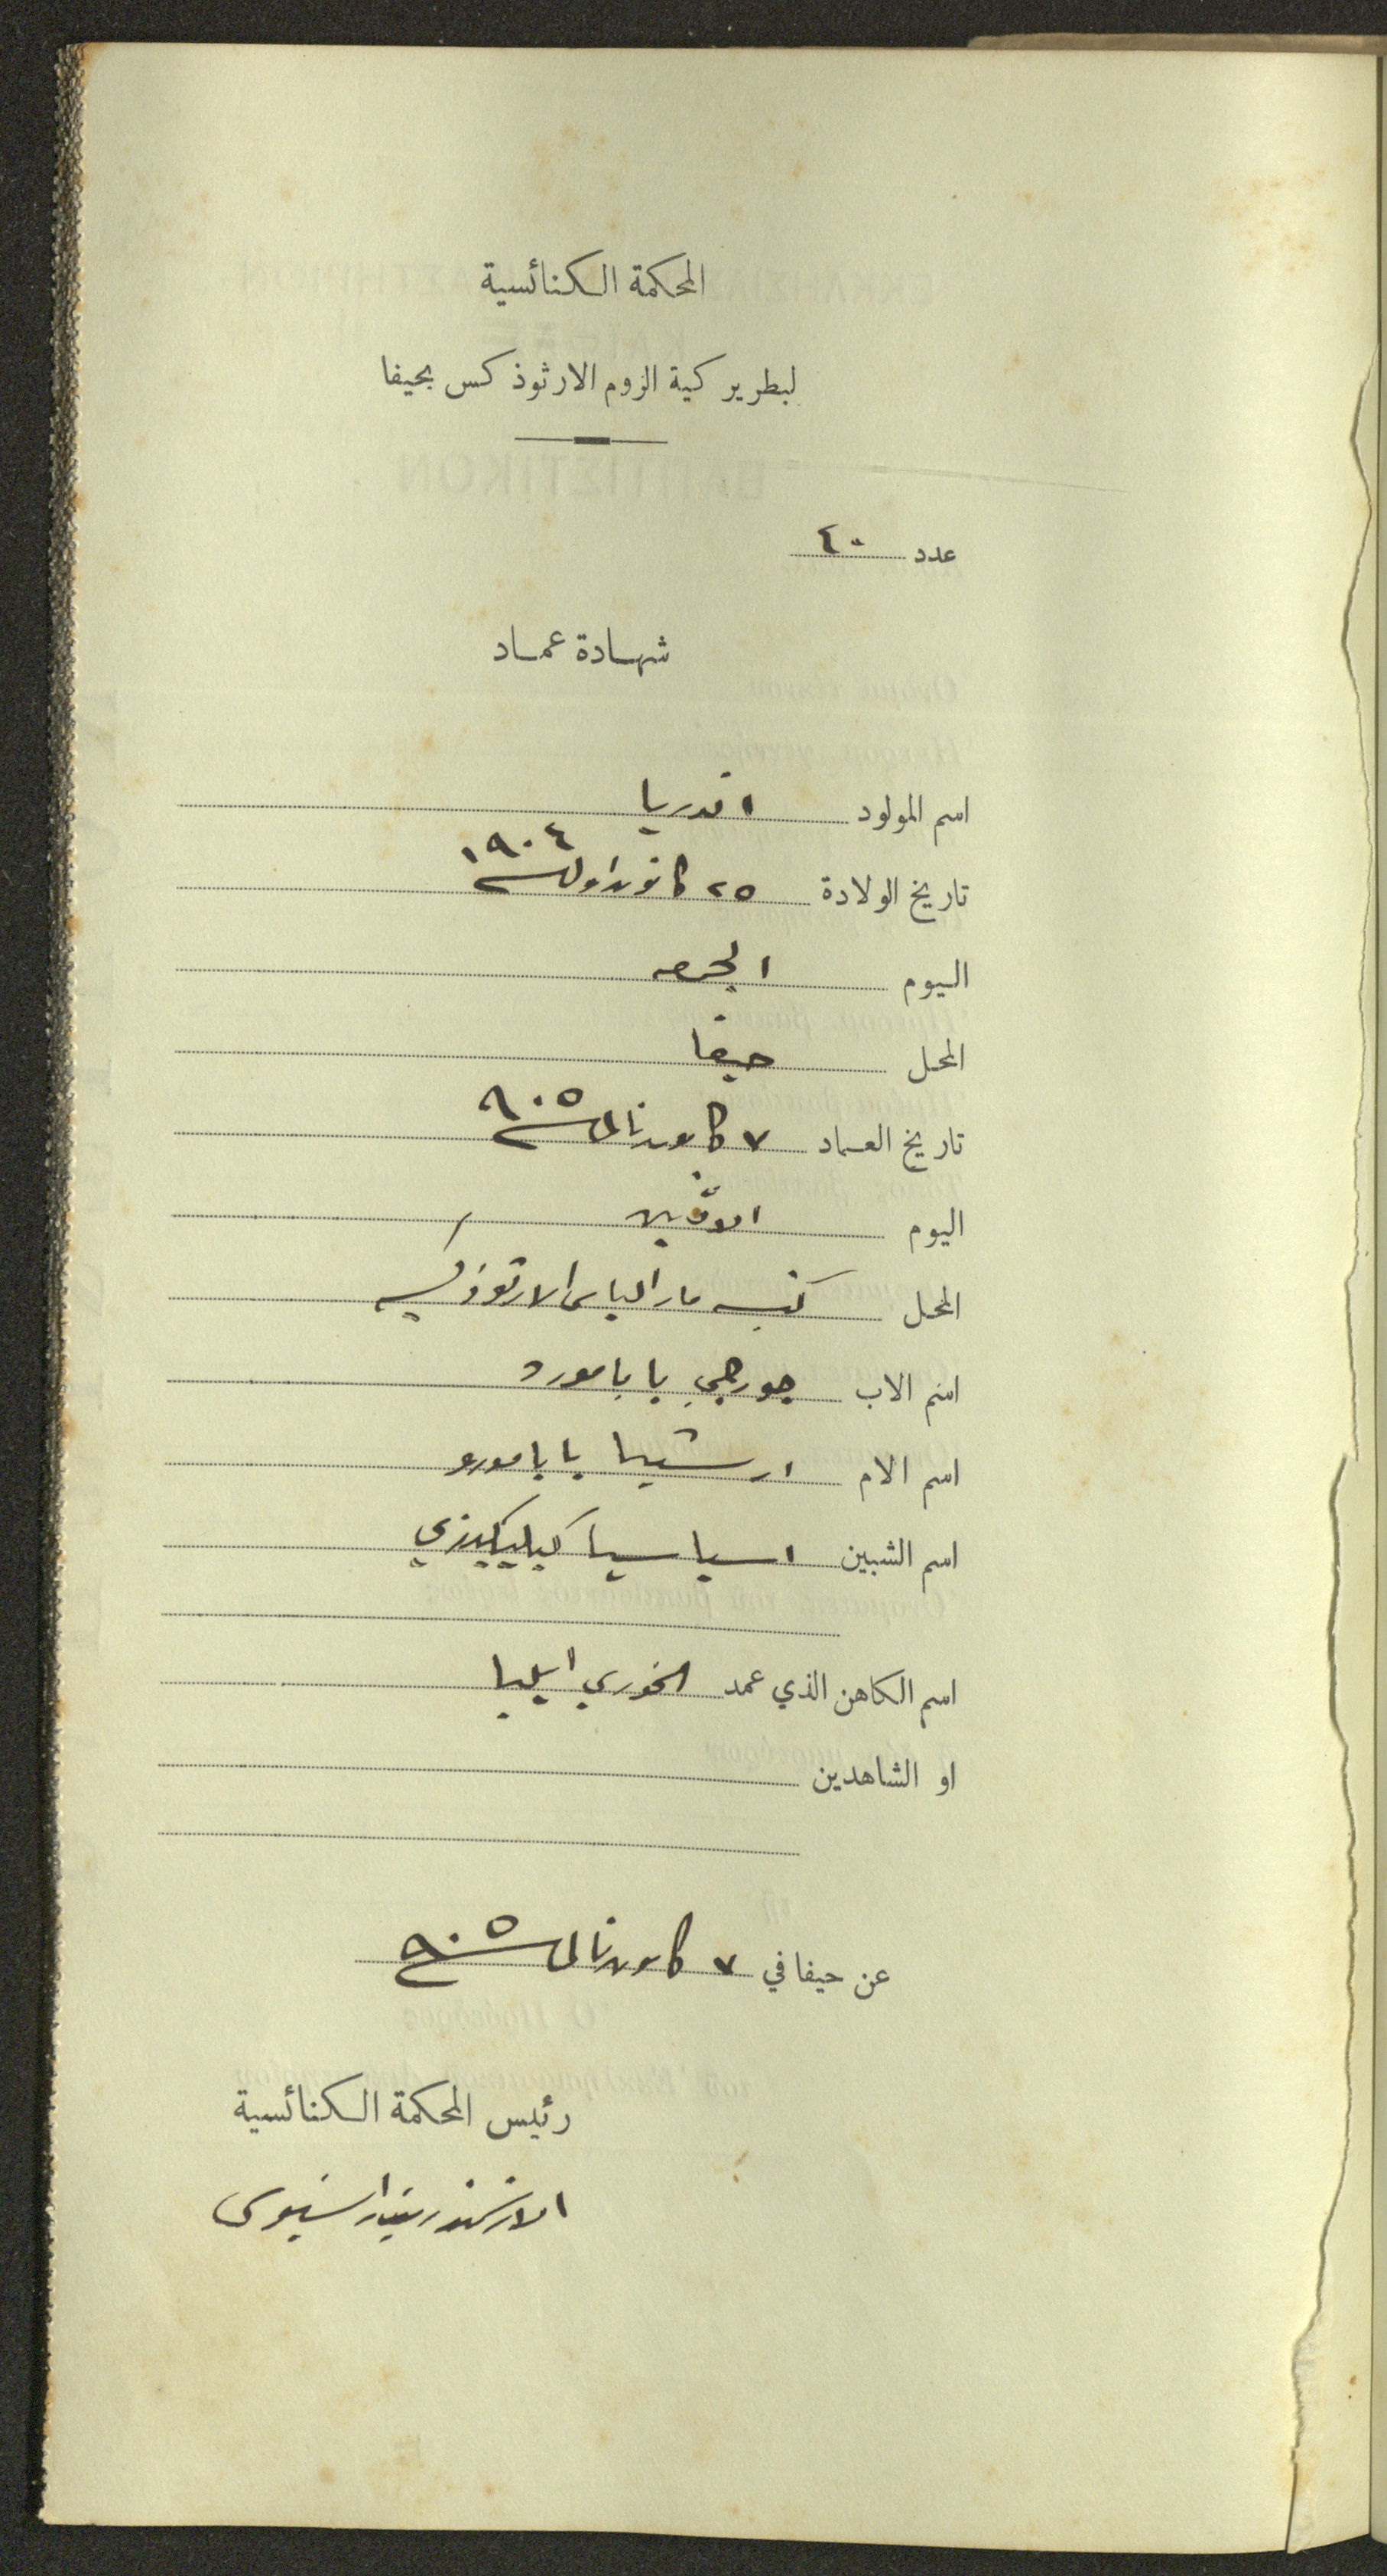 المحكمة الكنائسية
لبطريركية الروم الارثوذكس بحيفا
عدد ٤٠
شهادة عماد
اسم المولود اندريا
تاريخ الولادة ٢٥ كانون اول ١٩٠٤
اليوم الجمعه
المحل حيفا
تاريخ العماد ٧ كانون ثاني ٩٠٥
اليوم الاثنين
المحل كنيسه مار الياس الارثوذكسيه
اسم الاب جورجي بابامورو
اسم الام بابامورو
اسم الشبين
اسم الكاهن الذي عمد الخوري ايليا
او الشاهدين
عن حيفا في ٧ كانون ثاني ٩٠٥
رئيس المحكمة الكنائسية